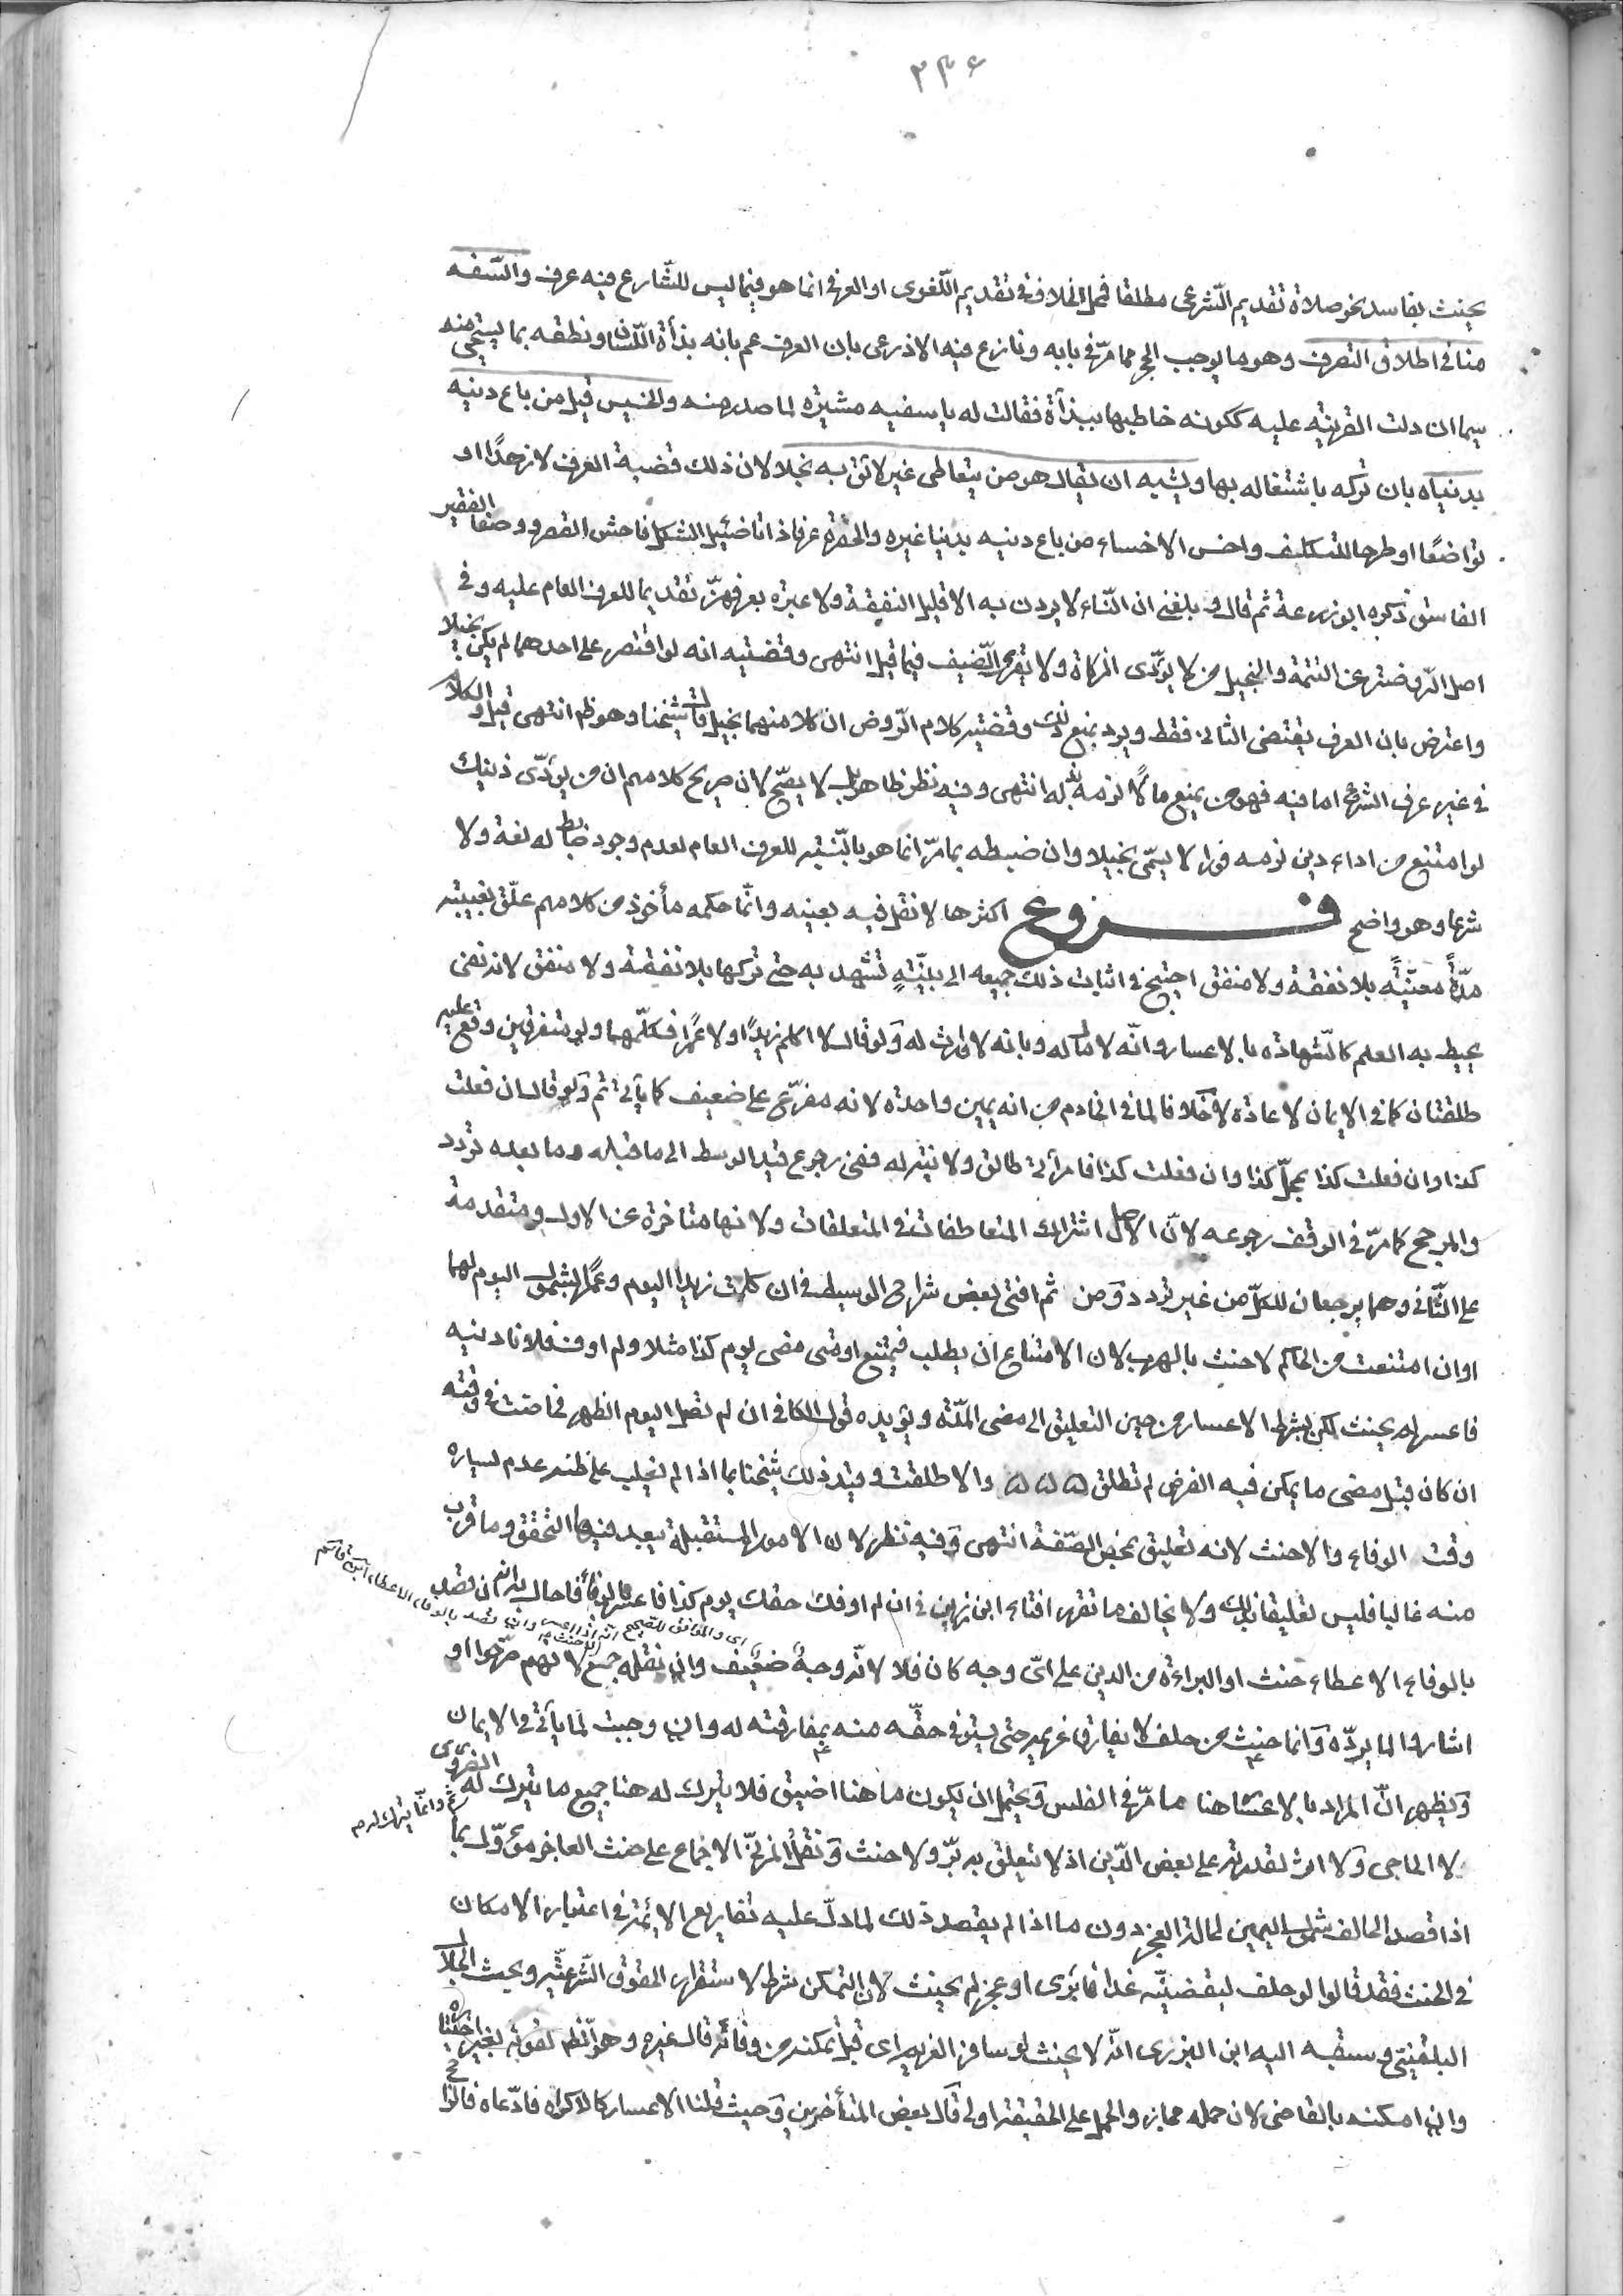 ٣٣٤
يحنث بفاسد نحو صلاة تقديم الشرعي مطلقا فمحل الخلاف في تقديم اللغوى او العرفى انما هو فيما ليس للشارع فيه عرف والسفه
مناف اطلاق التصرف وهو ما يوجب الحجر مما مرّ في بابه ونازع فيه الاذرعى بان العرف عم بانه بذأة اللسان ونطقه بما يستحيى منه
سيما ان دلت القرينة عليه ككونه خاطبها ببذأة فقالت له يا سفيه مشيرة لما صدر منه والخسيس قيل من باع دينه
بدنياه بان تركه باشتغاله بها ويشبه ان يقال هو من يتعاطى غير لائق به بخلا لان ذلك قضية العرف لا زهدًا او
تواضعًا او طرحا للتكليف واخس الاخساء من باع دينه بدنيا غيره والحقرة عرفا ذاتا ضئيل الشكل فاحش القصر ووصفا الفقير
الفاسق ذكره ابو زرعة ثم قال وبلغنى ان النساء لا يردن به الا قليل النفقة ولا عبرة بعرفهنّ تقديما للعرف العام عليه وفى
اصل الروضة عن التتمة والبخيل من لا يؤدّى الزكاة ولا يقرى الضيف فيما قيل انتهى وقضيته انه لو اقتصر على احدهما لم يكن بخيلا
واعترض بان العرف يقتضى الثانى فقط ويرد بمنع ذلك وقضية كلام الروض ان كلا منهما بخيل قال شيخنا وهو ظم انتهى قيل والكلام
فى غير عرف الشرع اما فيه فهو من يمنع مالًا لزمه بذله انتهى وفيه نظر ظاهر بل لا يصحّ لان صريح كلامهم ان من يؤدّى ذينك
لو امتنع من اداء دين لزمه فورا لا يسمّى بخيلا وان ضبطه بما مرّ انما هو بالنسبة للعرف العام لعدم وجود ضابط له لغة ولا
شرعا وهو واضح فروع اكثرها لا نقل فيه بعينه وانما حكمه مأخوذ من كلامهم علّق بغيبته
مدّةً معيّنةً بلا نفقة ولا منفق احتيج في اثبات ذلك جميعه الى بيّنةٍ تشهد به حتى تركها بلا نفقة ولا منفق لانه نفى
يحيط به العلم كالشهادة بالاعسار وانّه لا مال له وبانه لا وارث له وَلو قال لا اكلم زيدًا ولا عمرًا فكلّمهما ولو متفرقين وقع عليه
طلقتان كما فى الايمان لاعادة لا خلافا لما فى الخادم من انه يمين واحدة لانه مفرّع على ضعيف كما يأتى ثم وَلو قال ان فعلت
كذا وان فعلت كذا بمحلّ كذا وان فعلت كذا فامرأتى طالق ولا نية له ففى رجوع قيد الوسط الى ما قبله وما بعده تردد
والمرجح كما مرّ فى الوقف رجوعه لانّ الاصل اشتراك المتعاطفات فى المتعلقات ولانها متاخرة عن الاول ومتقدمة
على الثانى وهما يرجعان للكلّ من غير تردد وَمن ثم افتى بعض شراح الوسيط فى ان كلمت زيدا اليوم وعمرا بشمول اليوم لهما
او ان امتنعت من الحاكم لا حنث بالهرب لان الامتناع ان يطلب فيمتنع او متى مضى يوم كذا مثلا ولم اوف فلانا دينه
فاعسر لم يحنث لكن بشرط الاعسار من حين التعليق الى مضى المدّة ويؤيده قول الكافى ان لم نصل اليوم الظهر فحاضت فى وقته
ان كان قبل مضى ما يمكن فيه الفرض لم تطلق والا طلقت وقيد ذلك شيخنا بما اذا لم يغلب على ظنه عدم يساره
وقت الوفاء والا حنث لانه تعليق بمحض الصفة انتهى وَفيه نظر لان الامور المستقبلة يبعد فيها التحقق وما قرب
منه غالبا فليس تعليقا بذلك ولا يخالف ما تقرر افتاء ابن رزين فى ان لم اوفك حقك يوم كذا فاعسر فاحال به انه ان قصد
اى والموافق للصحيح انه اذا اعسر لا حنث وان قصد بالوفاء الاعطاء ابن قاسم
بالوفاء الاعطاء حنث او البراءة من الدين على اىّ وجه كان فلا لانه وجهٌ ضعيف وان نقله جمع لانهم صرّحوا او
اشاروا لما يردّه وَانما حنث من حلف لا يفارق غريمه حتى يستوفى حقّه منه بمفارقته له وان وجبت لما يأتى فى الايمان
وَيظهر انّ المراد بالاعسار هنا ما مرّ فى الفلس وَيحتمل ان يكون ما هنا اضيق فلا يترك له هنا جميع ما يترك له ثم وانما يترك له الضرورى
لا الحاجى وَلا اثر لقدرته على بعض الدّين اذ لا تتعلق به برّ ولا حنث وَنقل المزنىّ الاجماع على حنث العاجز مؤوّل بما
اذا قصد الحالف شمول اليمين لحالة العجز دون ما اذا لم يقصد ذلك لما دلّ عليه تفاريع الائمة فى اعتبار الامكان
فى الحنث فقد قالوا لو حلف ليقضينّه غدا فابرى او عجز لم يحنث لان التمكن شرط لاستقرار الحقوق الشرعيّة وبحث الجلال
البلقينى وسبقه اليه ابن البزرى انه لا يحنث لو سافر الغريم اى قبل تمكنه من وفائه قال غيره وهو ظم لفوته بغير اختياره
وان امكنه بالقاضى لان حمله مجاز والحمل على الحقيقة اولى قال بعض المتأخرين وَحيث قلنا الاعسار كالاكراه فادّعاه قالوا